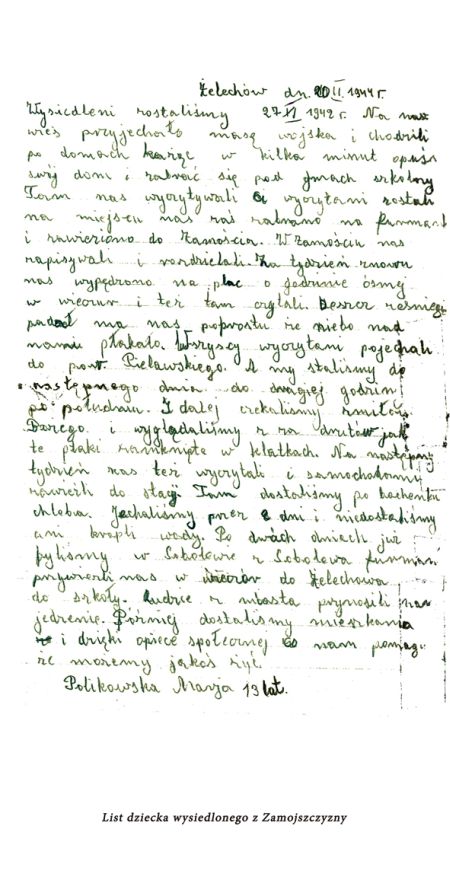 Żelechów dn. 20 II. 1944 r.
Wysiedleni zostaliśmy 27 XI 1942 r. Na nasz
wieś przyjechało masę wojska i chodzili
po domach karzę w kilka minut opuś
swój dom i zabrać się pod gmach szkolny
Tam nas wyczytywali a wyczytani zostali
na miejscu nas zaś zabrano na furmank
i zawieziono do Zamościa. W Zamościu nas
zapisywali i rozdzielali. Za tydzień znowu
nas wypędzono na plac o godzinie ósmej
w wieczur i też tam czytali. Deszcz ześnieg
padał na nas poprostu że niebo nad
nami płakało. Wszyscy wyczytani pojechali
do pow. Pieławskiego. A my staliśmy do
następnego dnia do drugiej godzini
po południu. I dalej czekaliśmy zmiłow
Bożego i wyglądaliśmy z za drutów jak
te ptaki zamknięte w klatkach. Na następny
tydzień nas też wyczytali i samochodamy
zawieźli do stacji Tam dostaliśmy po bochenku
chleba. Jechaliśmy przez 2 dni i niedostaliśmy
ani kropli wody. Po dwóch dniach już
byliśmy w Sobolewie z Sobolewa furman
przywieźli nas w wieczór do Żelechowa
do szkoły. Ludzie z miasta prynosili nam
jedzenie. Później dostaliśmy mieszkania
i dzięki opiece społecznej co nam pomag
że możemy jakoś żyć
Polikowska Marja 13 lat.
List dziecka wysiedlonego z Zamojszczyzny